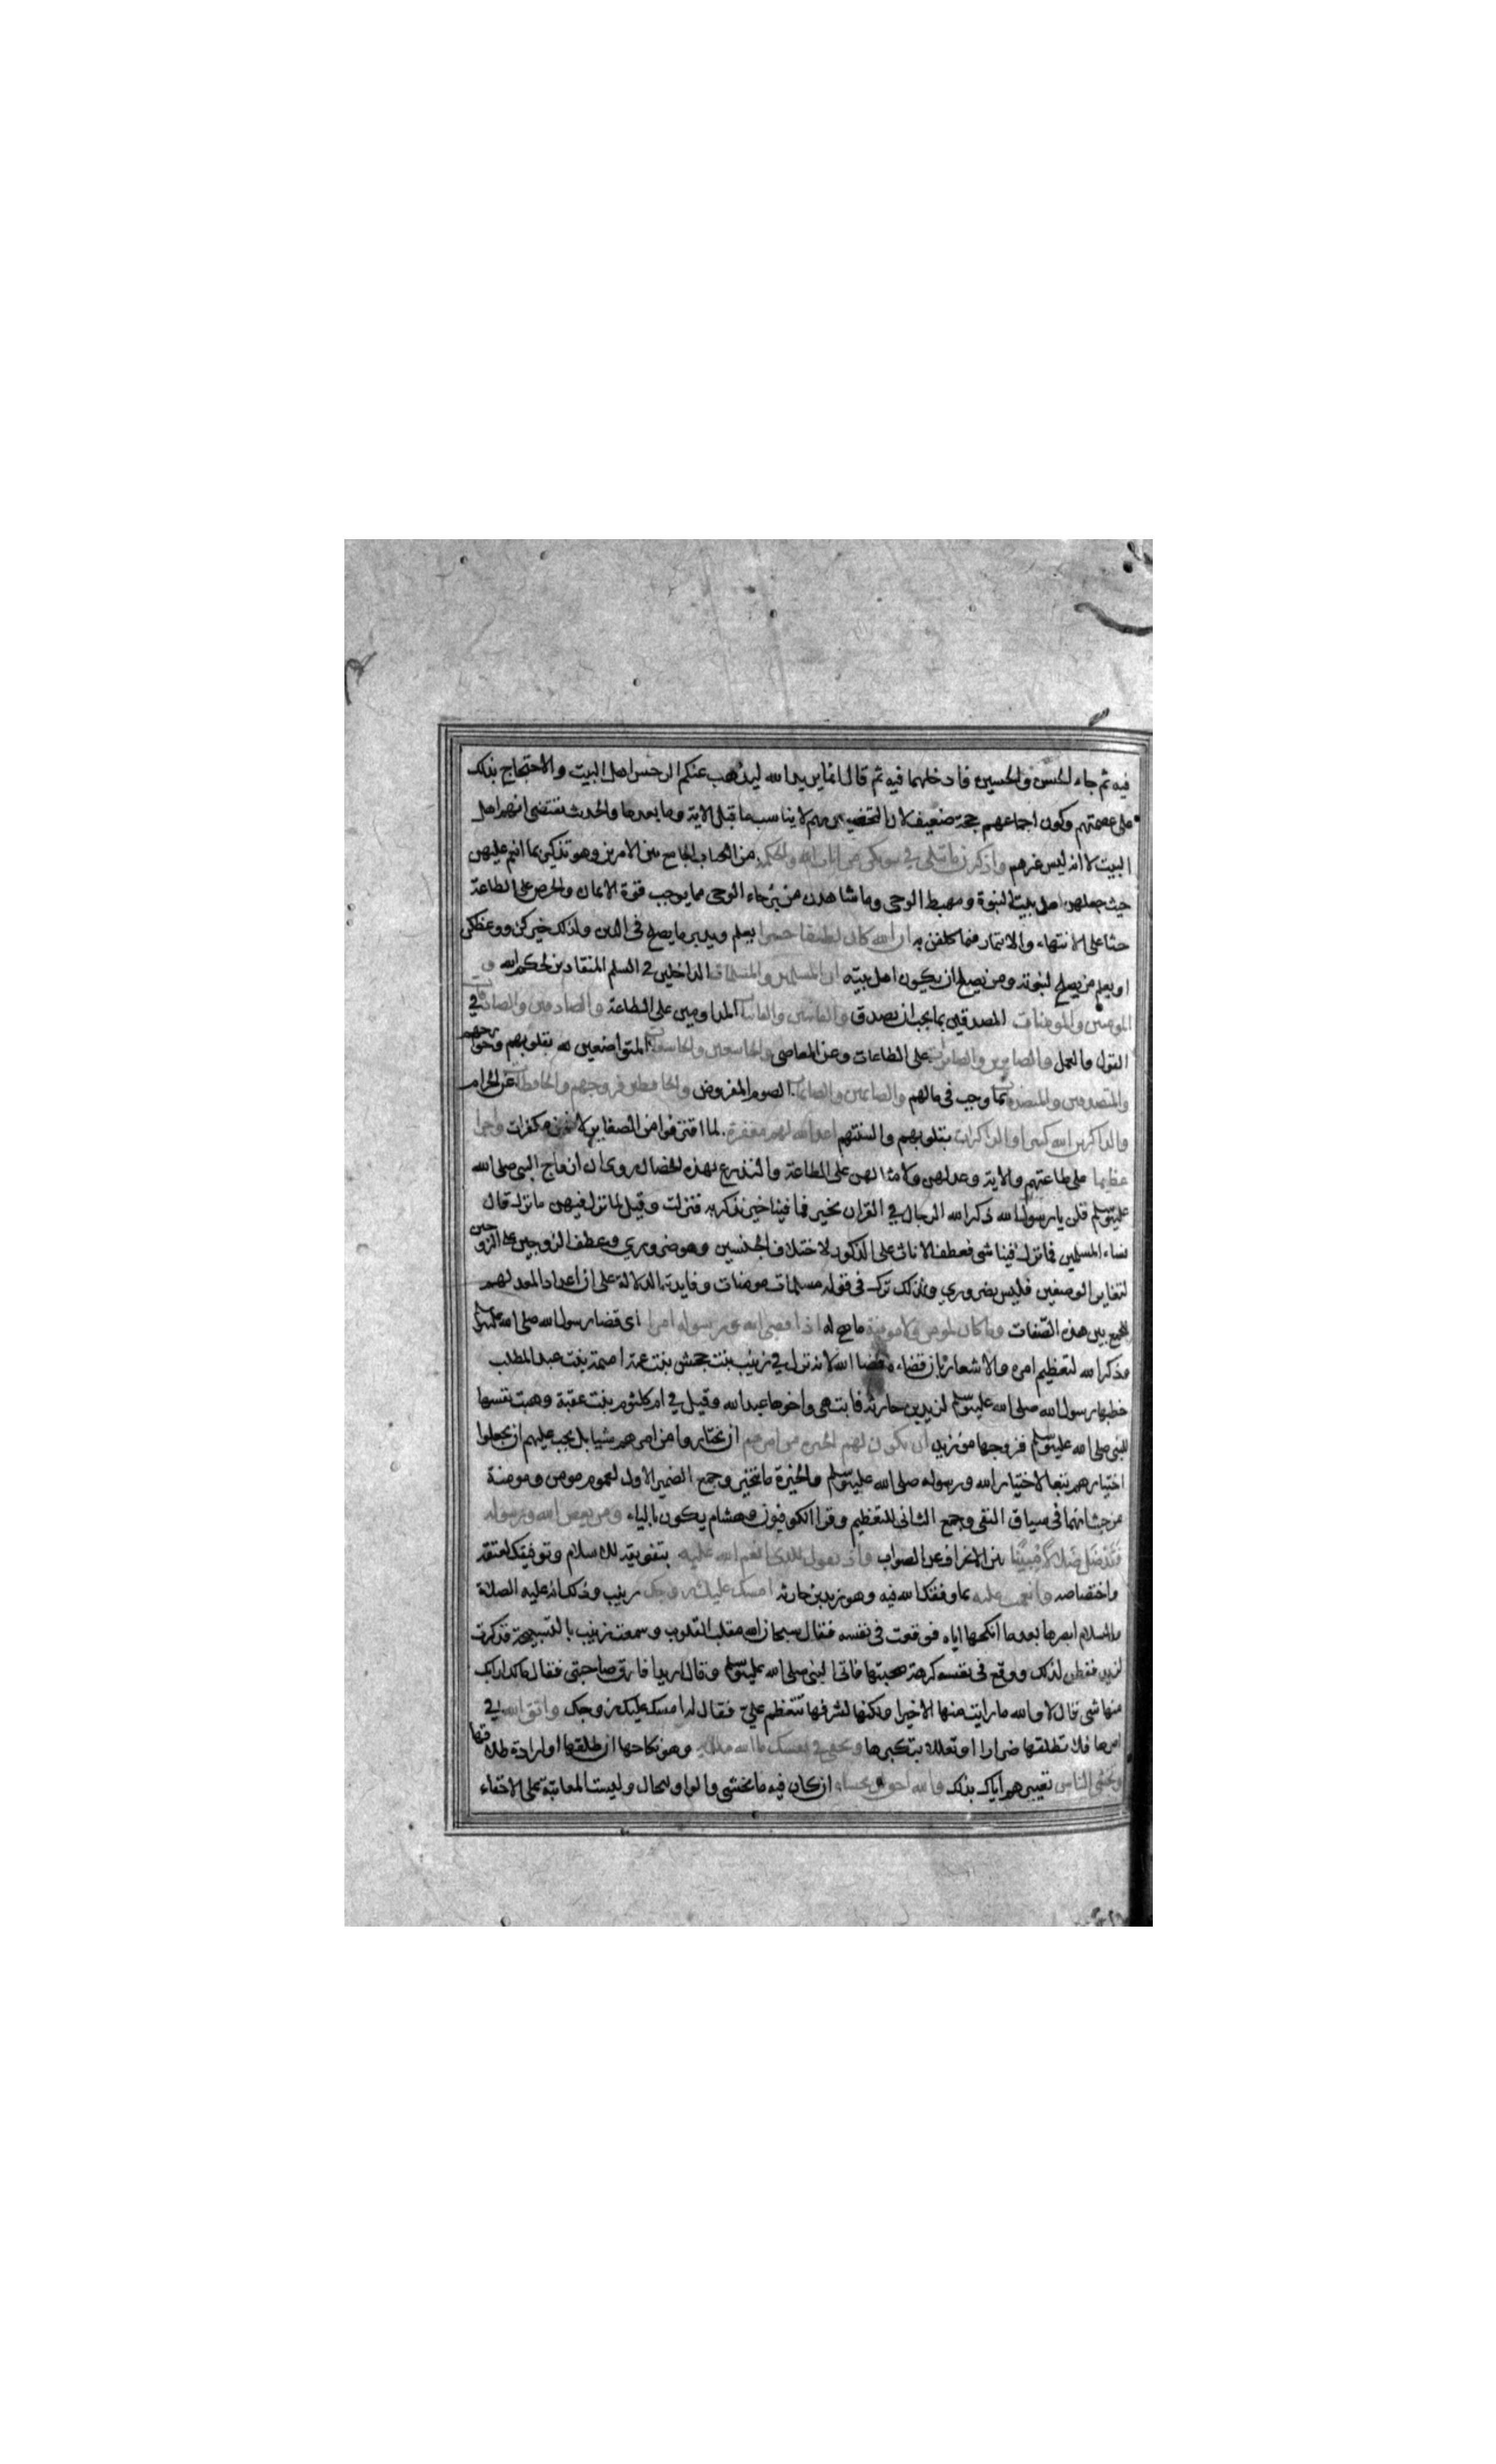 فيه ثم جاء الحسن والحسين فادخلهما فيه ثم قال انما يريد الله ليذهب عنكم الرجس اهل البيت والاحتجاج بذلك
على عصمتهم وكون اجماعهم حجة ضعيف لان التخصيص بهم لا يناسب ما قبل الاية وما بعدها والحديث يقتضى انهم اهل
البيت لا انه ليس غرهم واذكرن ما يتلى في بيوتكن من ايات الله والحكمة من الكتاب الجامع بين الامرين وهو تذكير بما انعم عليهن
حيث جعلهن اهل بيت النبوة ومهبط الوحى وما شاهدن من برحاء الوحى مما يوجب قوة الايمان والحرص على الطاعة
حثا على الانتهاء والايتمار فيما كلفن به ان الله كان لطيفا خبيرا يعلم ويدبر ما يصلح فى الدين ولذلك خيركن ووعظكن
او يعلم من يصلح لنبوته ومن يصلح ان يكون اهل بيته ان المسلمين والمسلمات الداخلين في السلم المنقادين لحكم الله و
المومنين والمومنات المصدقين بما يجب ان يصدق والقانتين والقانتات المداومين على الطاعة والصادقين والصادقات في
القول والعمل والصابرين والصابرات على الطاعات وعن المعاصى والخاشعين والخاشعات المتواضعين لله بقلوبهم وجوارحهم
والمتصدقين والمتصدقات بما وجب فى مالهم والصائمين والصائمات الصوم المفروض والحافظين فروجهم والحافظات عن الحرام
والذاكرين الله كثيرا والذاكرات بقلوبهم والسنتهم اعد الله لهم مغفرة لما اقترفوا من الصغاير لانهن مكفرات واجرا
عظيما على طاعتهم والاية وعد لهن ولامثالهن على الطاعة والتذرع بهذه الخصال روى ان ازواج النبى صلى الله
عليه وسلم قلن يا رسول الله ذكر الله الرجال في القران بخير فما فينا خير نذكر به فنزلت وقيل لما نزل فيهن ما نزل قال
نساء المسلمين فما نزل فينا شى فعطف الاناث على الذكور لاختلاف الجنسين وهو ضروري وعطف الزوجين على الزوجين
لتغاير الوصفين فليس بضروري ولذلك ترك فى قوله مسلمات مومنات وفايدته الدلالة على ان اعداد المعد لهم
للجمع بين هذه الصفات وما كان لمومن ولا مومنة ما صح له اذا قضى الله ورسوله امرا اى قضا رسول الله صلى الله عليه وسلم
وذكر الله لتعظيم امره والاشعار بان قضاءه قضا الله لانه نزل في زينب بنت جحش بنت عمته اميمة بنت عبد المطلب
خطبها رسول الله صلى الله عليه وسلم لزيد بن حارثه فابت هى واخوها عبد الله وقيل في ام كلثوم بنت عقبة وهبت نفسها
للنبى صلى الله عليه وسلم فزوجها من زيد ان يكون لهم الخيرة من امرهم ان يختاروا من امرهم شيا بل يجب عليهم ان يجعلوا
اختيارهم تبعا لاختيار الله ورسوله صلى الله عليه وسلم والخيرة ما يتخير وجمع الضمير الاول لعموم مومن ومومنة
من حيث انهما فى سياق النفى وجمع الثانى للتعظيم وقرا الكوفيون وهشام يكون بالياء ومن يعص الله ورسوله
فَقَدْ ضَلَّ ضَلَالًا مُبِينًا بين الانحراف عن الصواب واذ تقول للذى انعم الله عليه بتفويقه للاسلام وتوفيقك لعتقه
واختصاصه وانعمت عليه بما وفقك الله فيه وهو زيد بن حارثه امسك عليك زوجك زينب وذلك انه عليه الصلاة
والسلام ابصرها بعد ما انكحها اياه فوقعت فى نفسه فقال سبحان الله مقلب القلوب وسمعت زينب بالتسبيحة فذكرت
لزيد ففطن لذلك ووقع فى نفسه كرهة صحبتها فاتى النبى صلى الله عليه وسلم وقال اريد ان افارق صاحبتى فقال مالك ارابك
منها شى قال لا والله ما رايت منها الا خيرا ولكنها لشرفها تتعظم علىّ فقال له امسك عليك زوجك واتق الله في
امرها فلا تطلقها ضرارا او تعللا بتكبرها وتخفى في نفسك ما الله مبديه وهو نكاحها ان طلقها او ارادة طلاقها
وتخشى الناس تعييرهم اياك بذلك والله احق ان تخشاه ان كان فيه ما يخشى والواو للحال وليست المعاتبة على الاخفاء